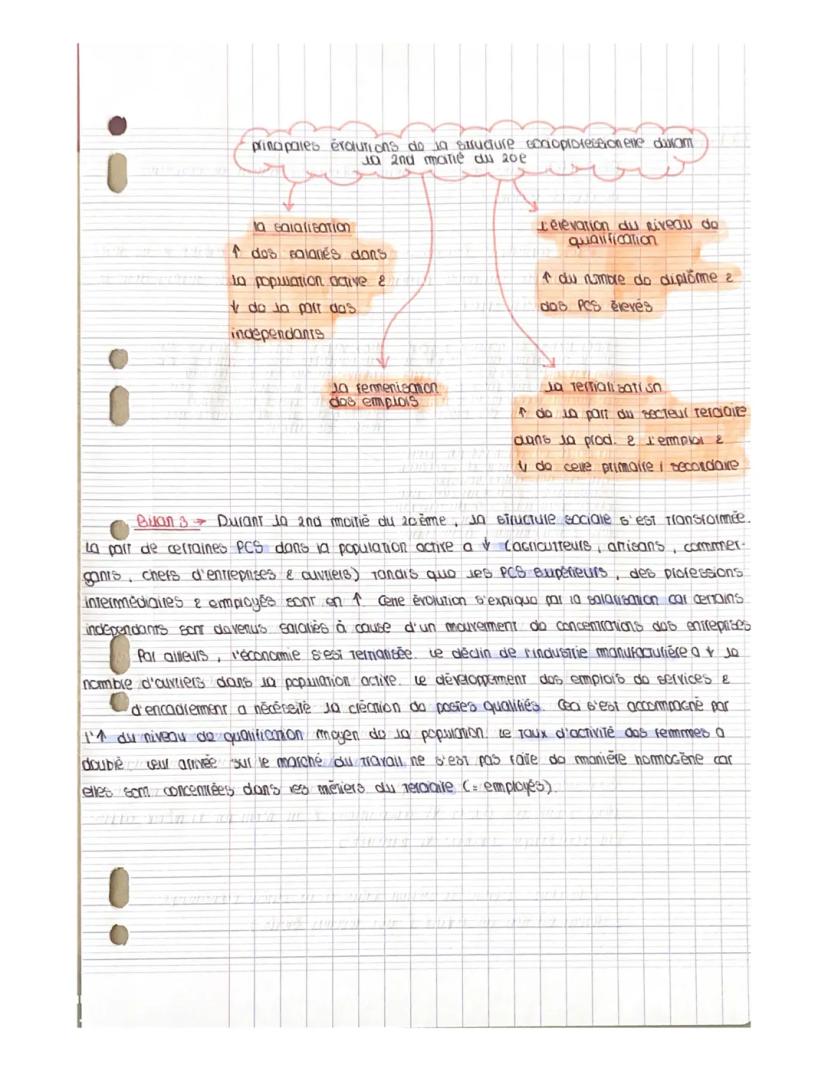 principales évolutions de la structure socioprofessionelle durant
la 2nd moitié du 20e
la salarisation
↑ des salariés dans
la population active &
↓ de la part des
indépendants
L'élévation du niveau de
qualification
↑ du nombre de diplôme &
des PCS élevés
la femmenisation
des emplois
la tertialisation
↑ de la part du secteur tertiaire
dans la prod. & l'emploi &
↓ de celle primaire / secondaire
Bilan 3 → Durant la 2nd moitié du 20ème, la structure sociale s'est transformée.
La part de certaines PCS dans la population active a ↓ (agriculteurs, artisans, commer-
çants, chefs d'entreprises & ouvriers) tandis que les PCS supérieurs, des professions
intermédiaires & employés sont en ↑. Cette évolution s'explique par la salarisation car certains
indépendants sont devenus salariés à cause d'un mouvement de concentrations des entreprises
Par ailleurs, l'économie s'est tertiarisée. Le déclin de l'industrie manufacturière a ↓ le
nombre d'ouvriers dans la population active. Le développement des emplois de services &
d'encadrement a nécésité la créction de postes qualifiés. Ceci s'est accompagné par
l'↑ du niveau de qualification moyen de la population. Le taux d'activité des femmes a
doublé, leur arrivée sur le marché du travail ne s'est pas faite de manière homogène car
elles sont concentrées dans les métiers du tertiaire (= employés).